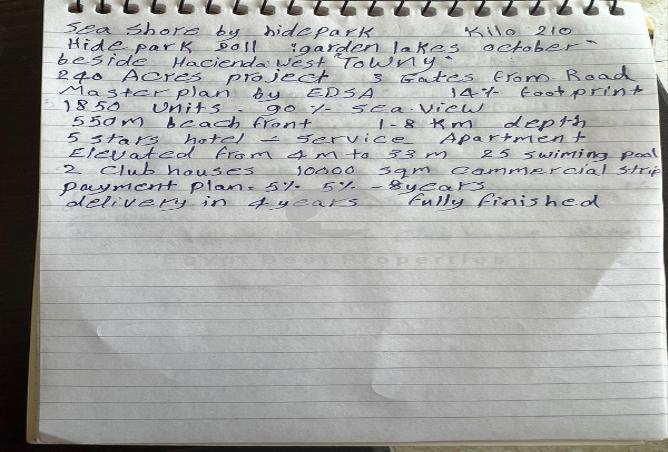 Sea Shore by hidepark Kilo 210
Hide park Soll :garden lakes october"
beside Hacienda West "Towny"
240 Acres project 3 Gates from Road
Master plan by EDSA 14% footprint
1850 Units - 90 % sea view
550m beach front 1-8 Km depth
5 stars hotel - service Apartment
Elevated from 4m to 33m 25 swiming pool
2 Club houses 10000 sqm commercial strip
payment plan. 5% 5% -8years
delivery in 4 years fully finished
Egypt Best Properties